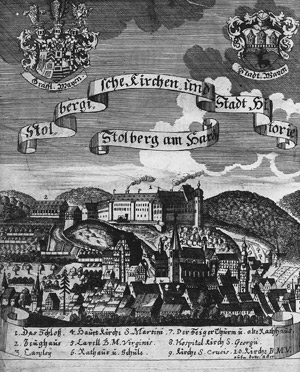 Gräfl. Wapen
Stadt Wapen
Stolbergi. sche Kirchen und Stadt Historie
Stolberg am Hartz
1. Das Schloß. 4. Haupt Kirche S. Martini. 7. Der Seiger Thurm u. alte Rathhauß.
2. Zeughaus 5. Capell B.M. Virginis. 8. Hospital Kirch S. Georgii
3. Cantzley 6. Rathaus u. Schule. 9. Kirche S. Crucis. 10. Kirche B.M.V.